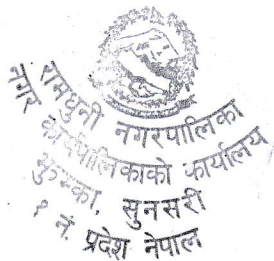 रामधुनी नगरपालिका
नगर कार्यपालिकाको कार्यालय
झुम्का, सुनसरी
१ नं. प्रदेश नेपाल